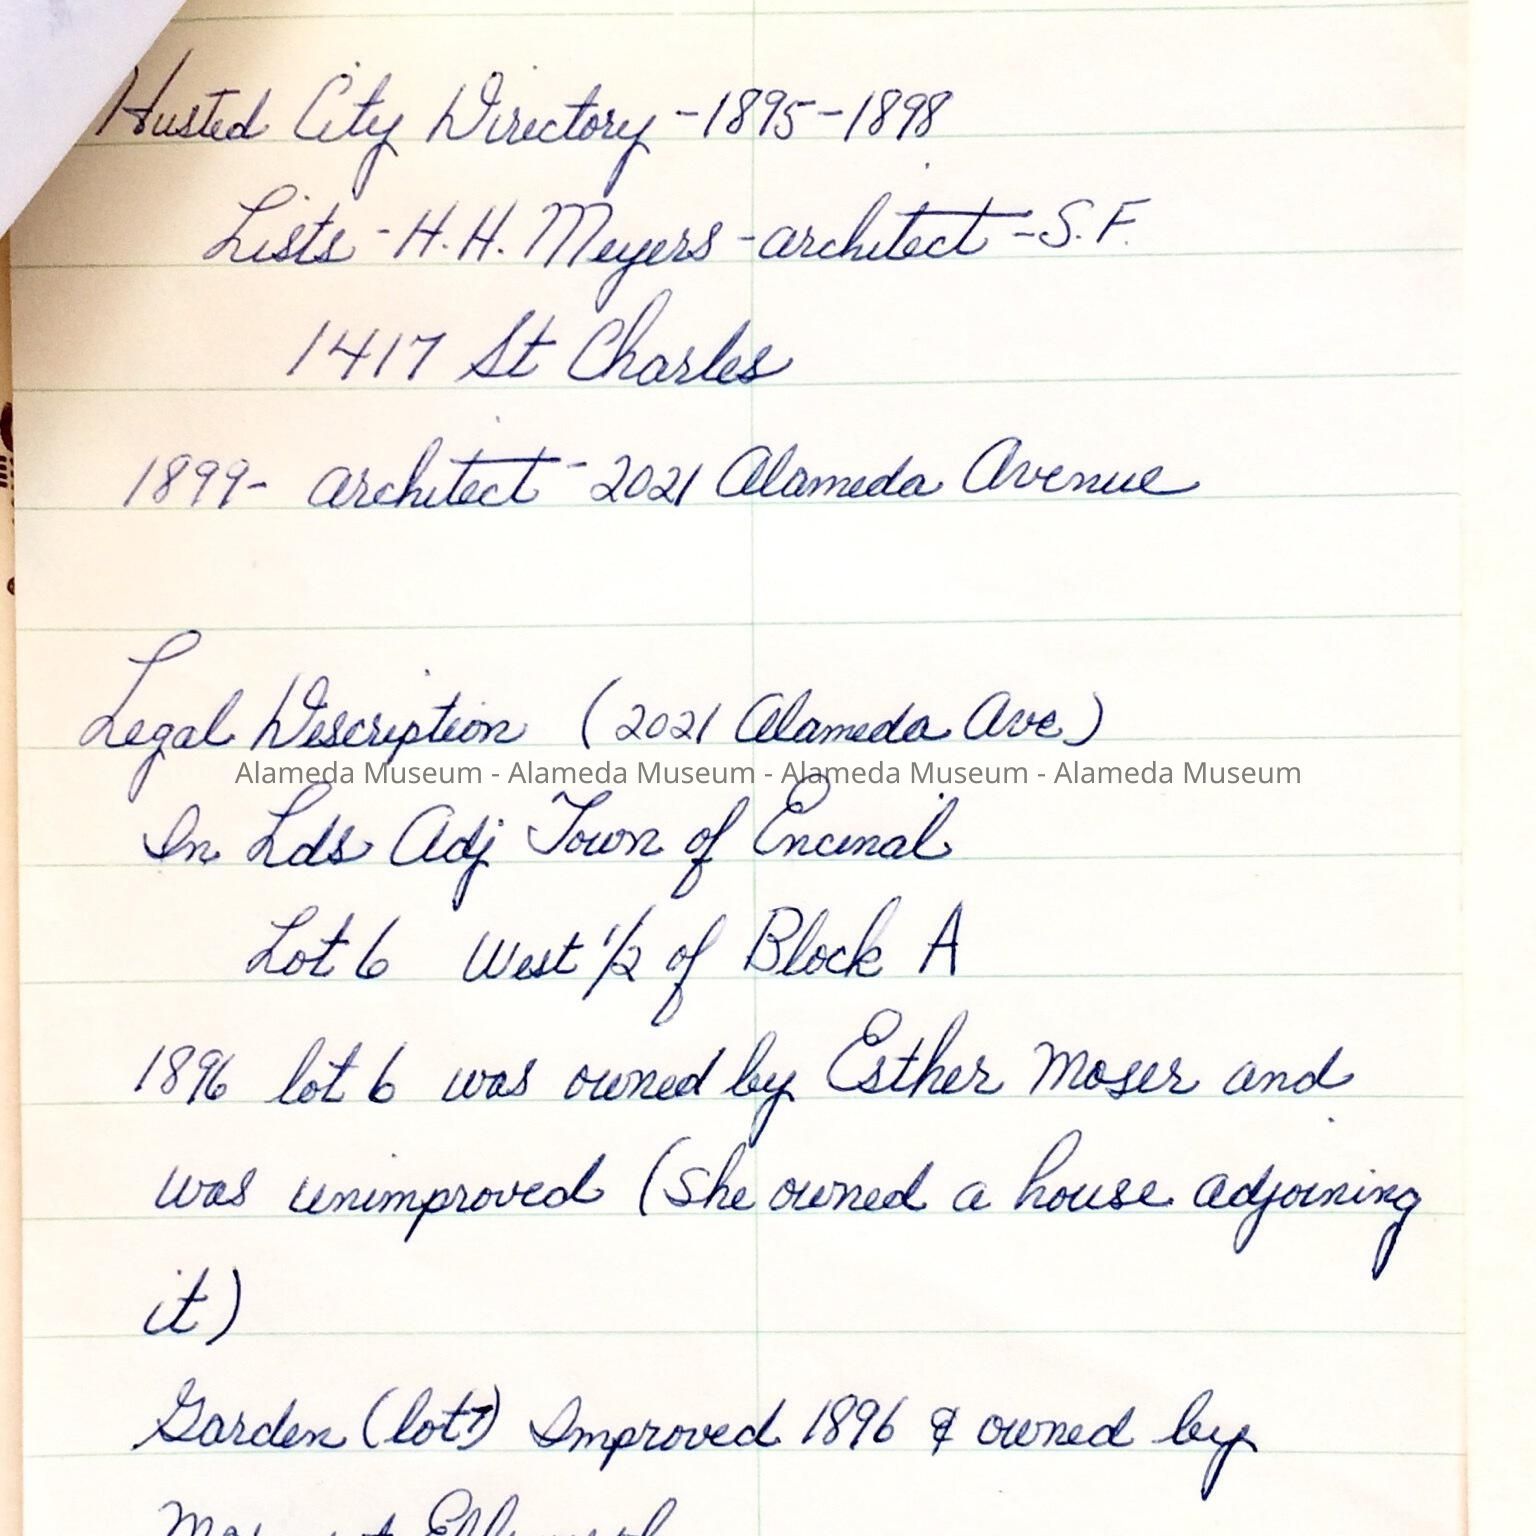 Husted City Directory - 1895 - 1898
Lists - H. H. Meyers - architect - S. F.
1417 St Charles
1899 - architect - 2021 Alameda Avenue
Legal Description (2021 Alameda Ave)
Alameda Museum - Alameda Museum - Alameda Museum - Alameda Museum
In Lds Adj Town of Encinal
Lot 6 West 1/2 of Block A
1896 lot 6 was owned by Esther Moser and
was unimproved (she owned a house adjoining
it)
Garden (lot 7) Improved 1896 & owned by